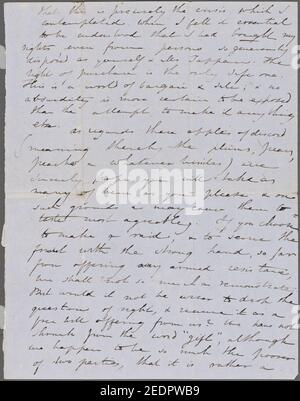 that this is precisely the crisis which I
contemplated, when I felt it essential
to be understood that I had bought my
rights even from persons so generously
disposed as yourself & Mr. Tappan. The
right of purchase is the only safe one.
This is a world of bargain & sale; & no
absurdity is more certain to be exposed
than the attempt to make it anything
else.
As regards these apples of discord
(meaning thereby the plums, pears,
peaches, & whatever besides) we
sincerely as many of them as you please, & on
such grounds as may make them
taste most agreeably. If you choose
to make a raid, & to seize the
fruit with the strong hand, so far
from offering any armed resistance,
we shall not so much as remonstrate.
But would it not be wiser to drop the
question of right, & receive it as a
free-will offering from us? We have not
shrunk from the word "gift", although
we happen to be so much the poorer
of two parties, that it is rather a
alamy
Image ID: 2EDPWB9
www.alamy.com